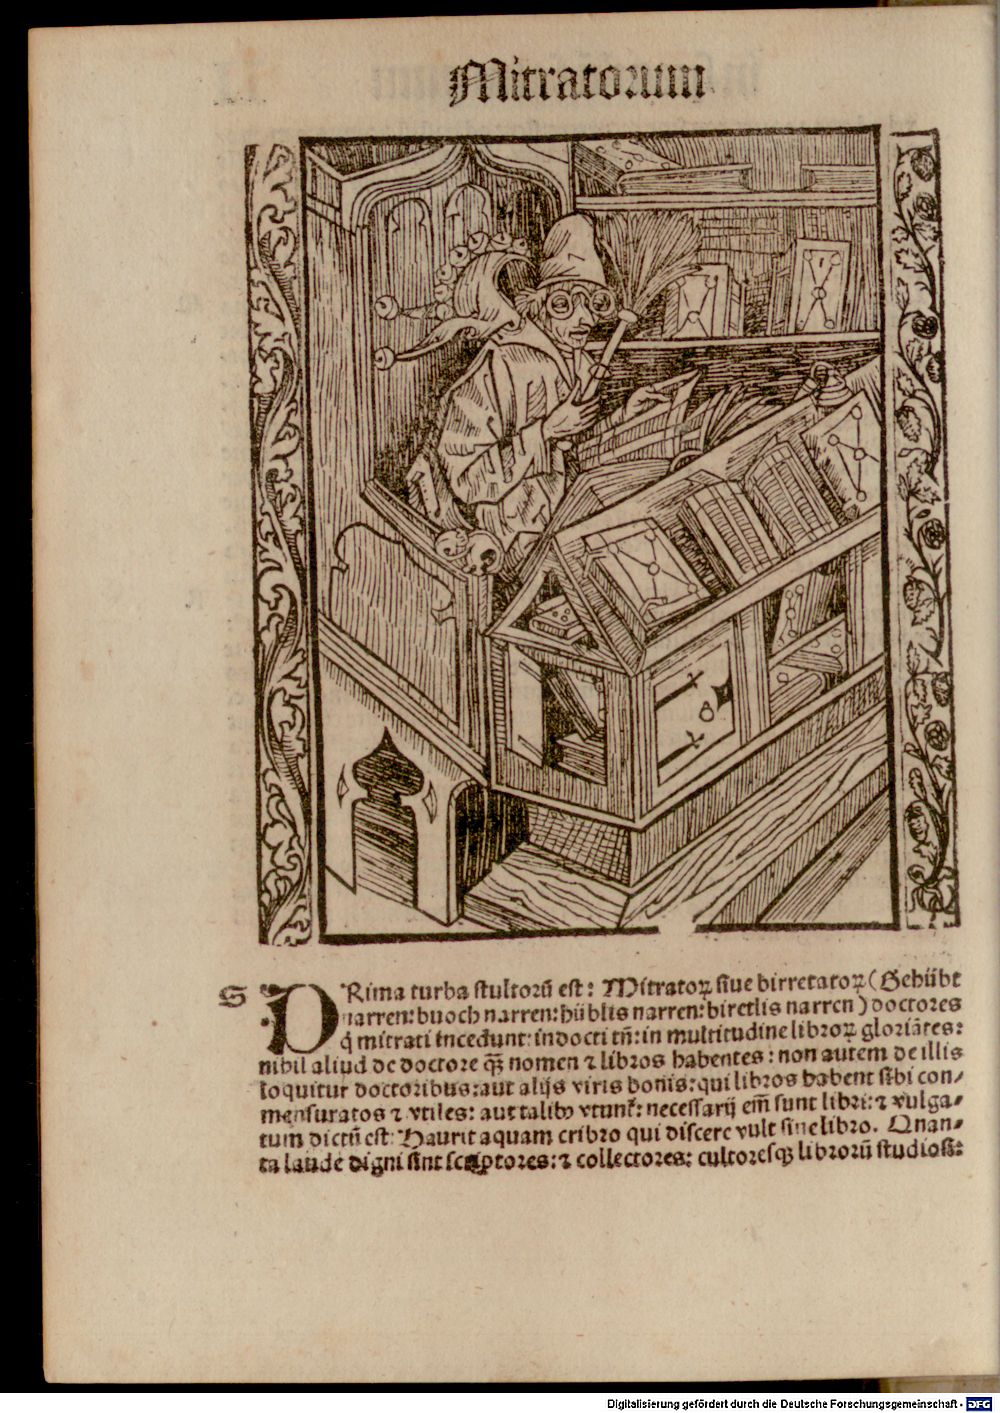 Mitratorum
S
PRima turba stultorū est: Mitratoꝝ siue birretatoꝝ (Gehübt
narren: buoch narren: hüblis narren: biretlis narren) doctores
q̇ mitrati incedunt: indocti tn̄: in multitudine libroꝝ gloriātes:
nihil aliud de doctore qꝫ̄ nomen ⁊ libros habentes: non autem de illis
loquitur doctoribus: aut alijs viris bonis: qui libros habent sibi con/
mensuratos ⁊ vtiles: aut talibꝰ vtunt̄: necessarij em̄ sunt libri: ⁊ vulga/
tum dictū est: Haurit aquam cribro qui discere vult sine libro. Quan/
ta laude digni sint scriptores: ⁊ collectores: cultoresqꝫ librorū studiosi:
Digitalisierung gefördert durch die Deutsche Forschungsgemeinschaft - DFG